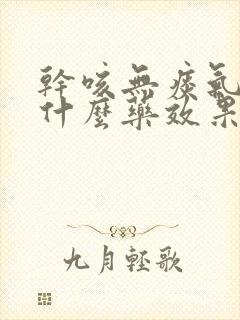 幹咳無痰氣
什麼藥效果
九月輕歌